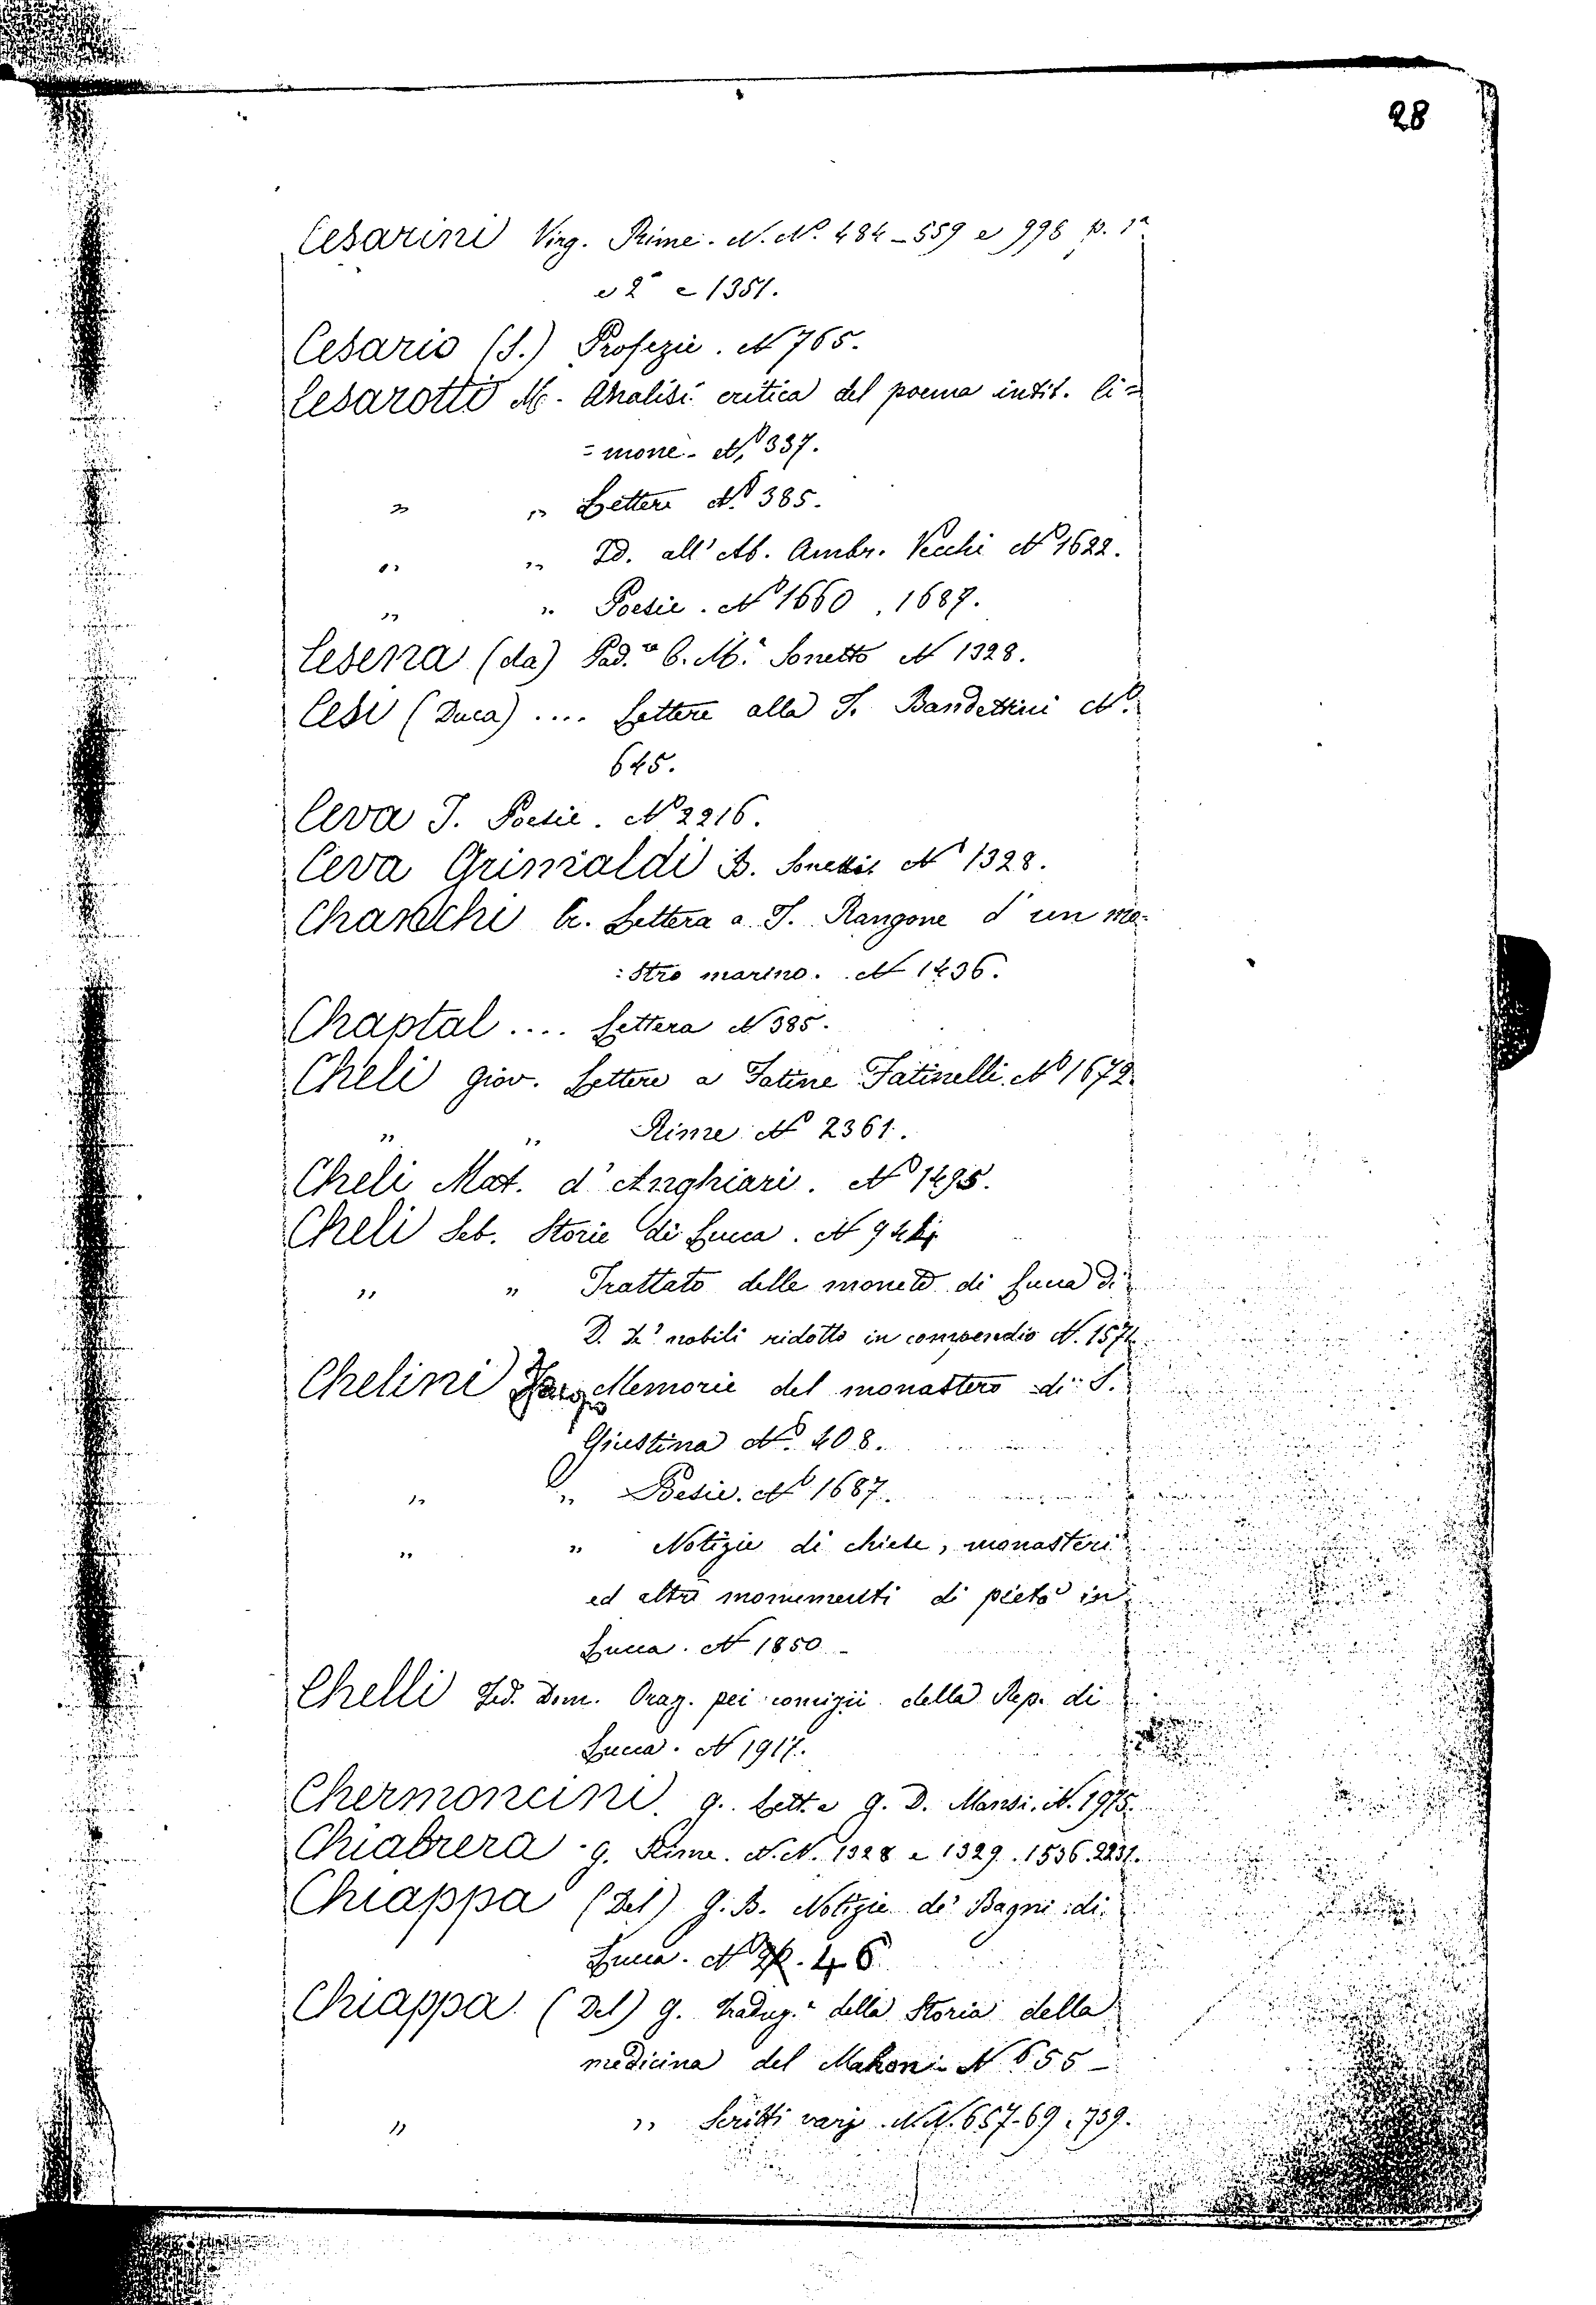 28
Cesarini Virg. Rime. N.N.º 484-559 e 998 p. 1ª
e 2ª e 1351.
Cesario (S.) Profezie. Nº 765.
Cesarotti M. Analisi critica del poema intit. Ci=
=mone. Nº 337.
" " Lettere Nº 385.
" " Id. all' Ab. Ambr. Vecchi Nº 1622.
" " Poesie. Nº 1660, 1687.
Cesena (da) Pad.re B. M.ª Sonetto N 1328.
Cesi (Duca) .... Lettere alla T. Bandettini Nº.
645.
Ceva T. Poesie. Nº 2216.
Ceva Grimaldi B. Sonetti Nº 1328.
Chanchi Lettera a T. Rangone d'un mo=
:stro marino. N 1436.
Chaptal .... Lettera N 385.
Cheli Giov. Lettere a Fatine Fatinelli. Nº 1672.
" " Rime Nº 2361.
Cheli Mat. d'Anghiari. Nº 1495.
Cheli Seb. Storie di Lucca. N
" " Trattato delle monete di Lucca di
D. De' nobili ridotto in compendio N. 1571.
Chelini Memorie del monastero di S.
Giustina Nº. 408.
" " Poesie. Nº 1687.
" " Notizie di chiese, monasteri
ed altri monumenti di pietà in
Lucca. N 1850 -
Chelli Fed. Dom. Oraz. pei comizii della Rep. di
Lucca. N 1917.
Chermoncini. G. Lett. a G. D. Mansi. N. 1975.
Chiabrera G. Rime. N.N. 1328 e 1329. 1536. 2231.
Chiappa (Del) G. B. Notizie de' Bagni di
Lucca. Nº 46
Chiappa (Del) G. Traduz.e della Storia della
medicina del Mahon. N 655 -
" " Scritti varj. N.N. 657-69, 739.